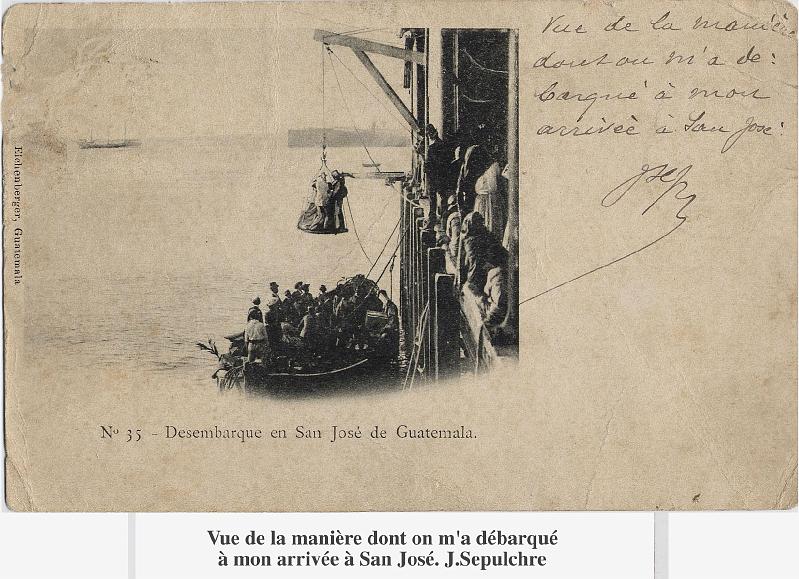 Vue de la manière
dont on m'a de:
barqué à mon
arrivée à San José.
JSep
Eichenberger, Guatemala
Nº 35 – Desembarque en San José de Guatemala.
Vue de la manière dont on m'a débarqué
à mon arrivée à San José. J.Sepulchre